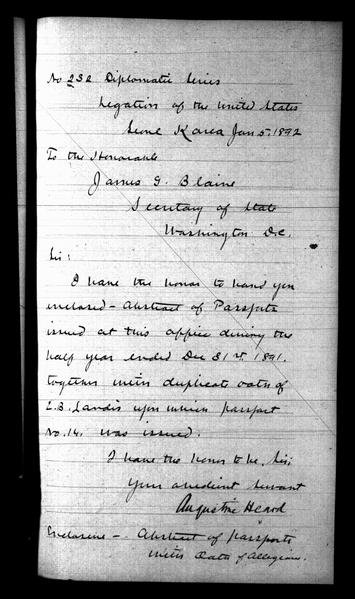 No 232 Diplomatic Series
Legation of the United States
Seoul Korea Jan 5. 1892
To the Honorable
James G. Blaine
Secretary of State
Washington D.C.
Sir:
I have the honor to hand you
enclosed - Abstract of Passports
issued at this office during the
half year ended Dec 31st. 1891.
together with duplicate oath of
E.B. Landis upon which passport
No. 14. was issued.
I have the honor to be, Sir;
Your obedient servant
Augustine Heard
Enclosure - Abstract of Passports
with Oath of Allegiance.